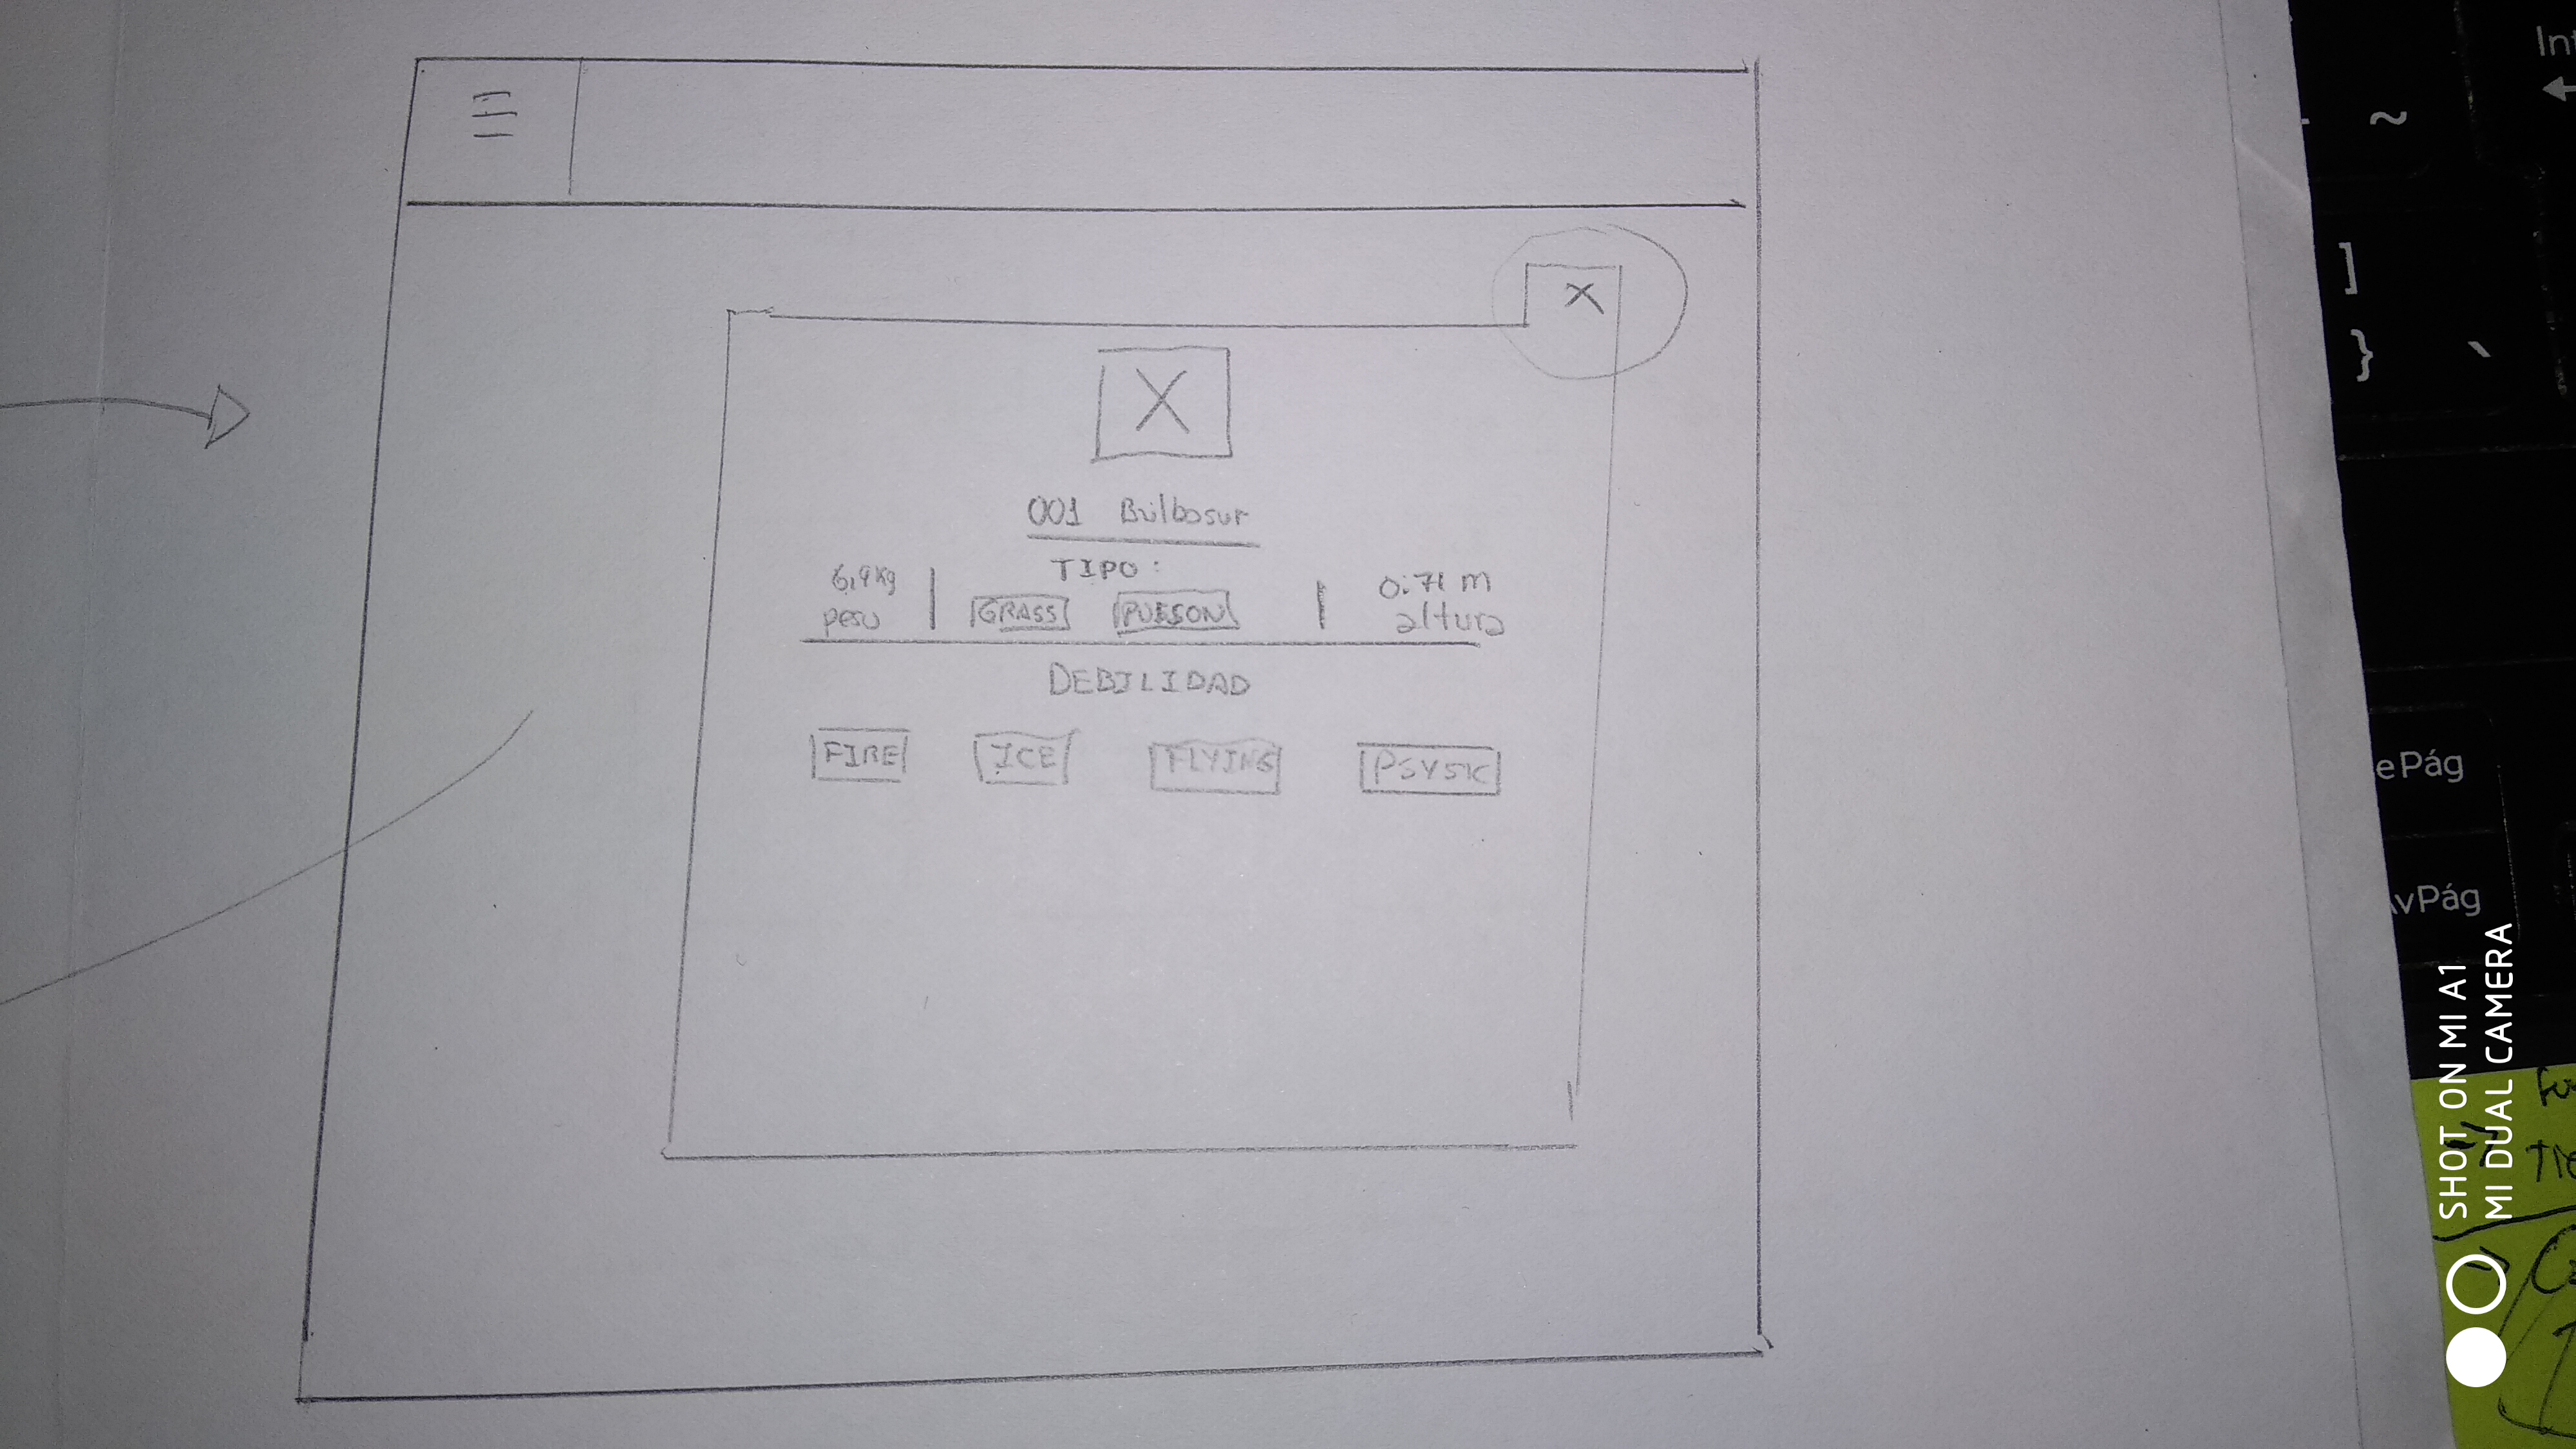 X
X
001 Bulbosur
TIPO:
6,9 Kg
peso
GRASS
PUISON
0.71 m
altura
DEBILIDAD
FIRE
ICE
FLYING
PSYSIC
Int
~
]
}
,
ePág
AvPág
SHOT ON MI A1
MI DUAL CAMERA